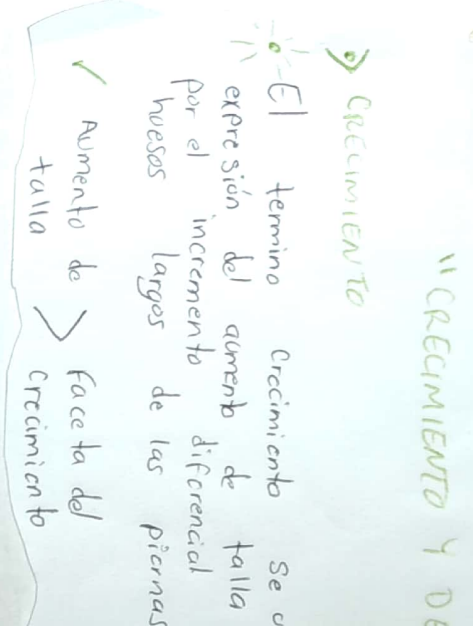 "CRECIMIENTO Y DE
CRECIMIENTO
El termino Crecimiento Se
expresión del aumento de talla
por el incremento diferencial
huesos largos de las piernas
Aumento de > Faceta del
talla Crecimiento